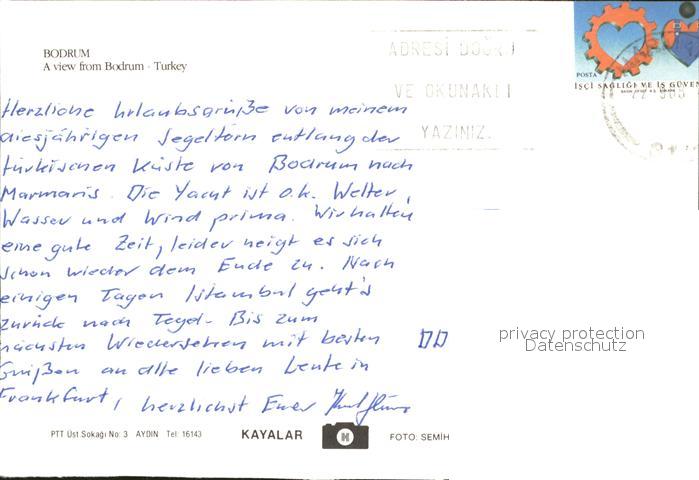 BODRUM
A view from Bodrum · Turkey
ADRESİ DOĞRU
VE OKUNAKLI
YAZINIZ.
POSTA
İŞÇİ SAĞLIĞI VE İŞ GÜVEN
Herzliche Urlaubsgrüße von meinem
diesjährigen Segeltörn entlang der
türkischen Küste von Bodrum nach
Marmaris. Die Yacht ist o.k. Wetter,
Wasser und Wind prima. Wir hatten
eine gute Zeit, leider neigt es sich
schon wieder dem Ende zu. Nach
einigen Tagen Istambul geht's
zurück nach Tegel. Bis zum
nächsten Wiedersehen mit besten
Grüßen an alle lieben Leute in
Frankfurt, herzlichst Euer
privacy protection
Datenschutz
PTT Üst.Sokağı No: 3 AYDIN Tel: 16143
KAYALAR
FOTO: SEMİH